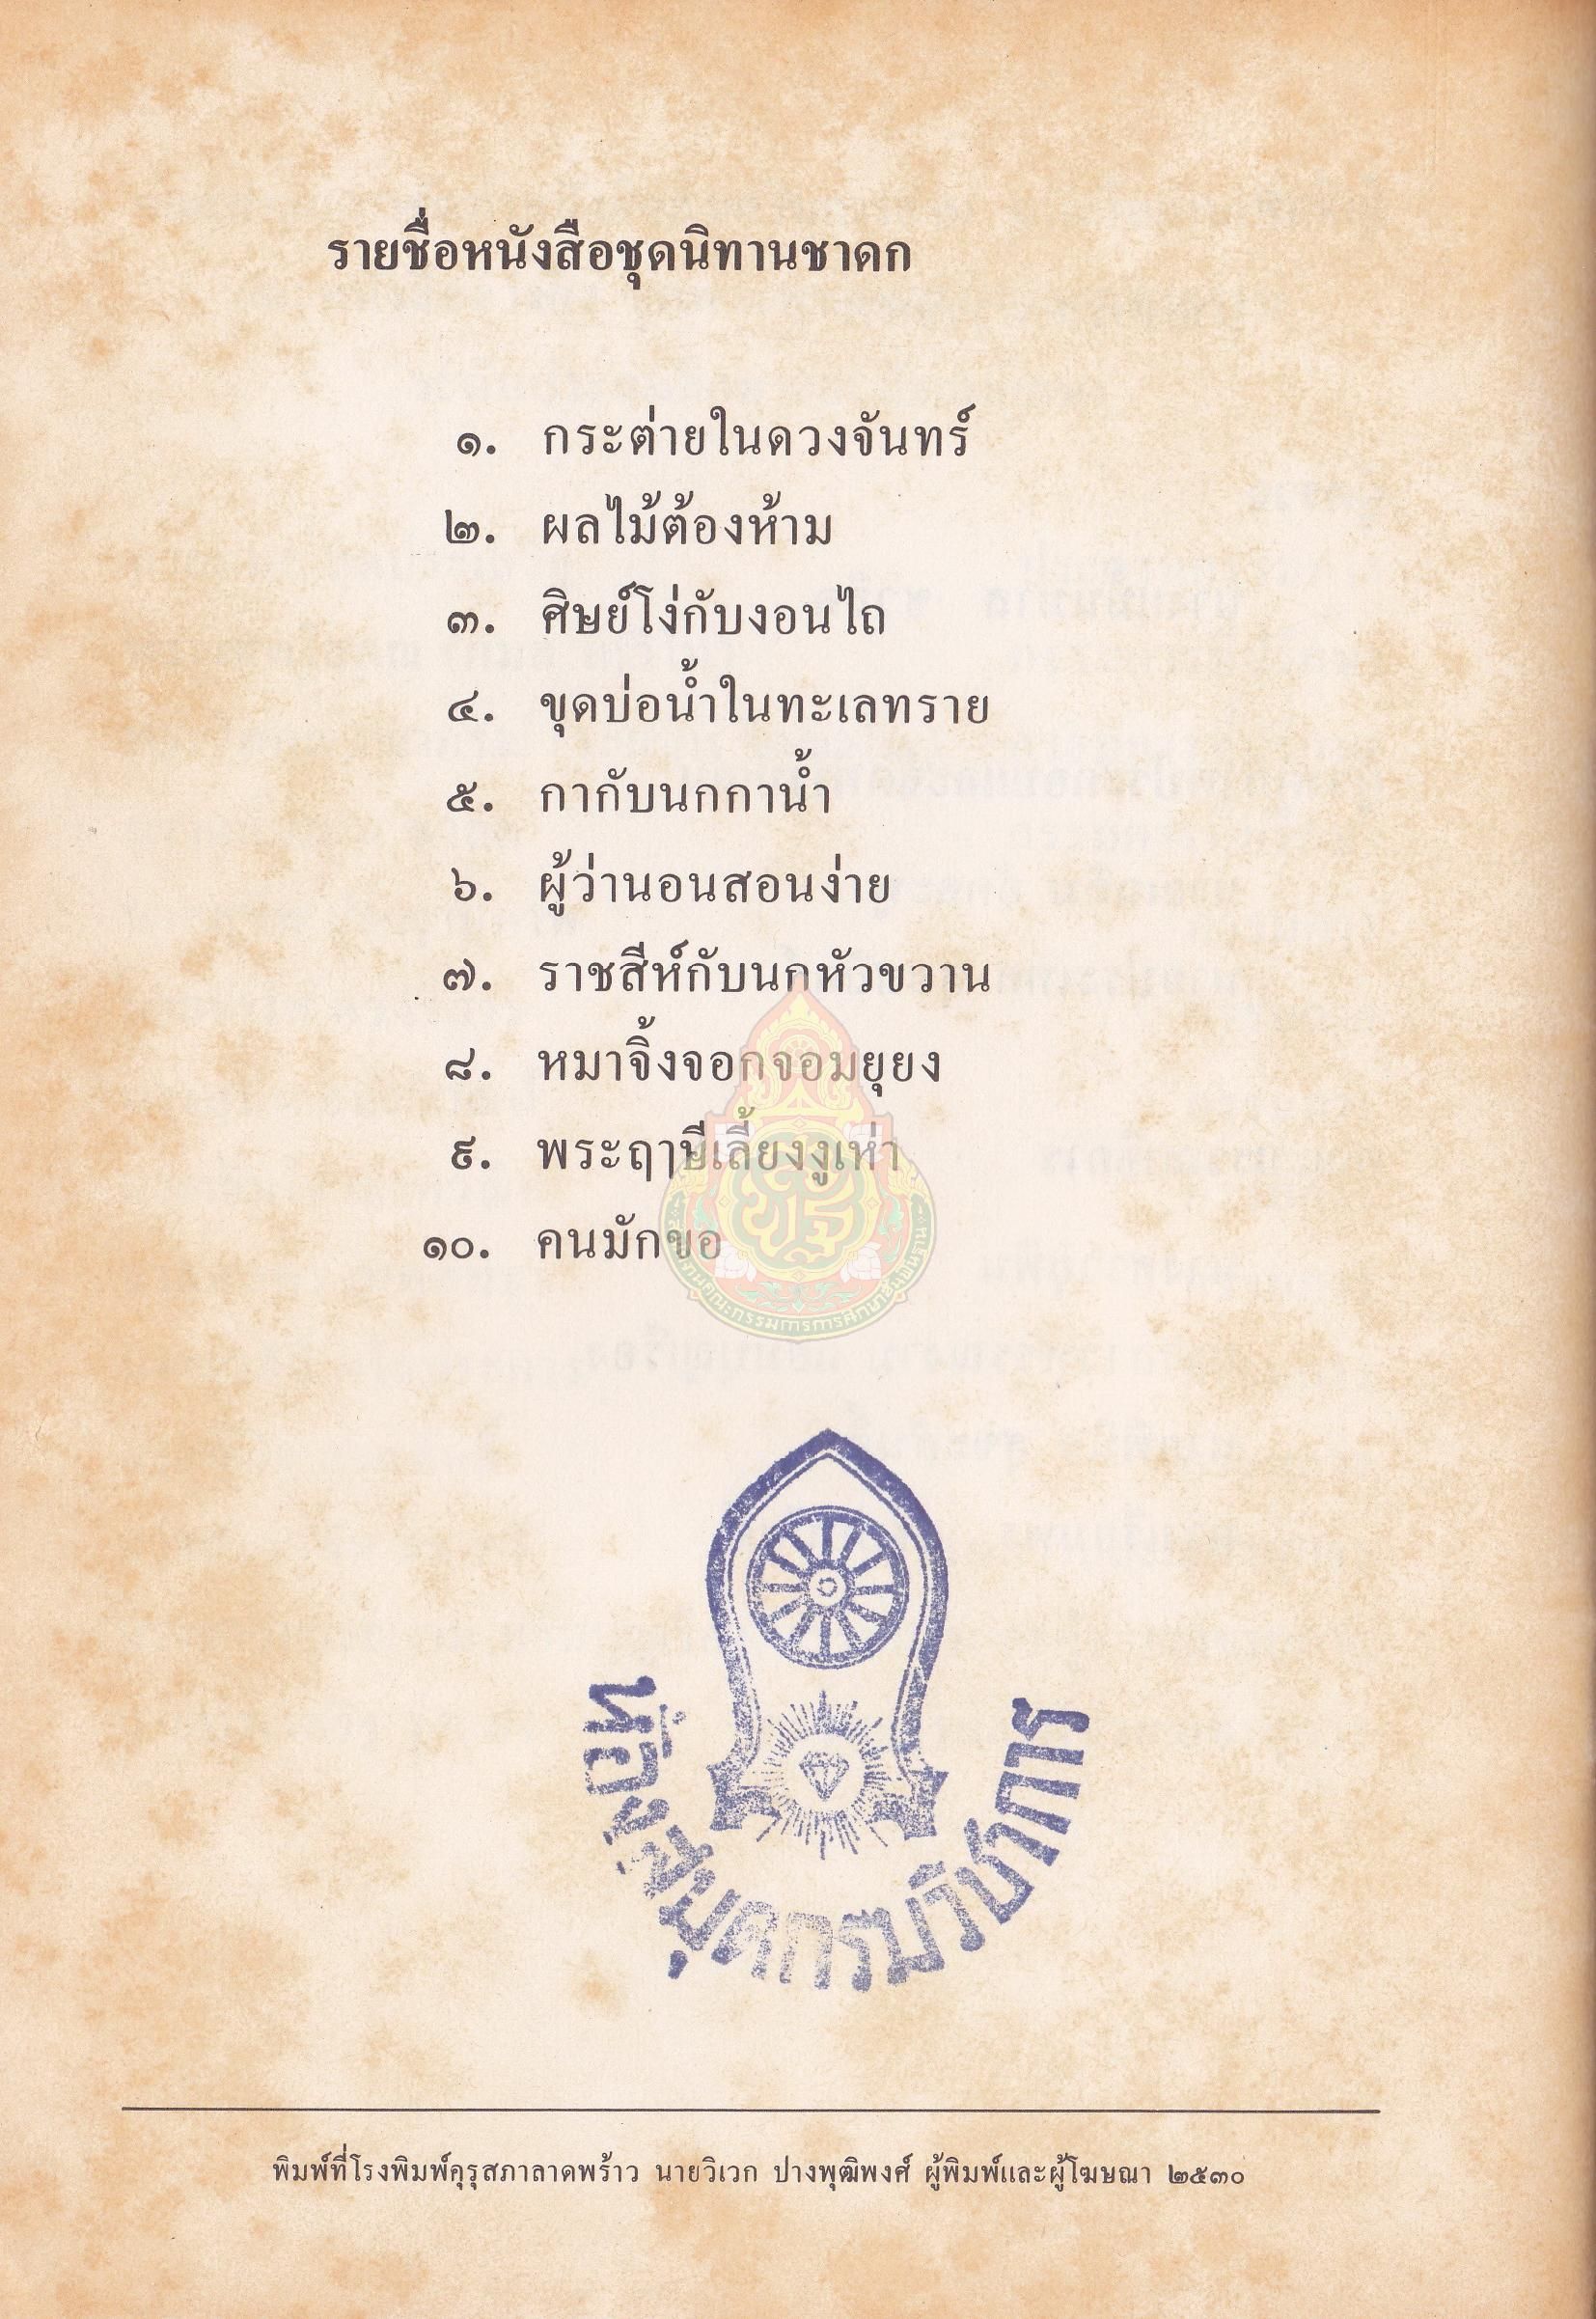 รายชื่อหนังสือชุดนิทานชาดก
๑. กระต่ายในดวงจันทร์
๒. ผลไม้ต้องห้าม
๓. ศิษย์โง่กับงอนไถ
๔. ขุดบ่อน้ำในทะเลทราย
๕. กากับนกกาน้ำ
๖. ผู้ว่านอนสอนง่าย
๗. ราชสีห์กับนกหัวขวาน
๘. หมาจิ้งจอกจอมยุยง
๙. พระฤๅษีเลี้ยงงูเห่า
๑๐. คนมักขอ
สำนักงานคณะกรรมการการศึกษาขั้นพื้นฐาน
ห้องสมุดกรมวิชาการ
พิมพ์ที่โรงพิมพ์คุรุสภาลาดพร้าว นายวิเวก ปางพุฒิพงศ์ ผู้พิมพ์และผู้โฆษณา ๒๕๓๐